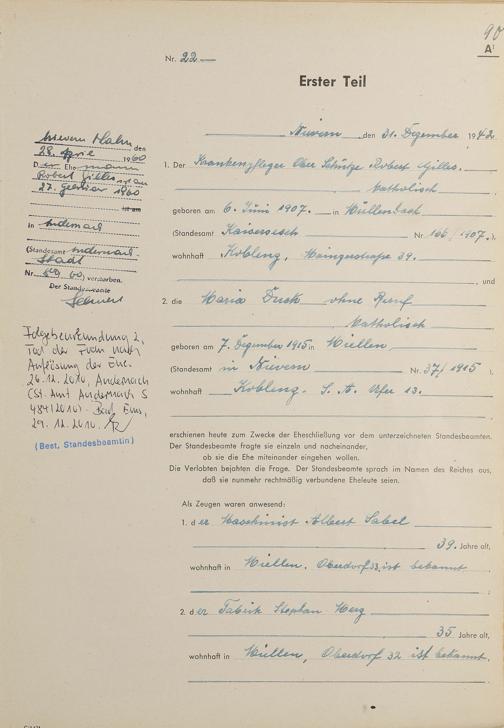 90
A¹
Nr. 22
Erster Teil
Nievern den 31. Dezember 1942
1. Der Krankenpfleger Ober Schütze Robert Gilles
katholisch
geboren am 6. Juni 1907. in Müllenbach
(Standesamt Kaisersesch Nr. 166/1907.)
wohnhaft Koblenz, Mainzerstraße 39.
, und
2. die Maria ohne Beruf
katholisch
geboren am 7. Dezember 1915 in Miellen
(Standesamt in Nievern Nr. 37/1915).
wohnhaft Koblenz. S. A. Ufer 13.
erschienen heute zum Zwecke der Eheschließung vor dem unterzeichneten Standesbeamten.
Der Standesbeamte fragte sie einzeln und nacheinander,
ob sie die Ehe miteinander eingehen wollen.
Die Verlobten bejahten die Frage. Der Standesbeamte sprach im Namen des Reiches aus,
daß sie nunmehr rechtmäßig verbundene Eheleute seien.
Als Zeugen waren anwesend:
1. der Maschinist Albert Sabel
39. Jahre alt,
wohnhaft in Miellen. Oberdorf 33, ist bekannt
2. der Stephan
35 Jahre alt,
wohnhaft in Miellen, Oberdorf 32 ist bekannt.
Nievern Lahn den
28. April 1960
Der Ehemann
Robert Gilles ist am
27. 1960
in Andernach
(Standesamt Andernach
Stadt
Nr. 60) verstorben.
Der Standesbeamte
Folgebeurkundung 2,
Tod der Frau nach
Auflösung der Ehe.
26.12.2010, Andernach
(St. Amt Andernach S
484/2010). Bad Ems,
29.12.2010.
(Best, Standesbeamtin)